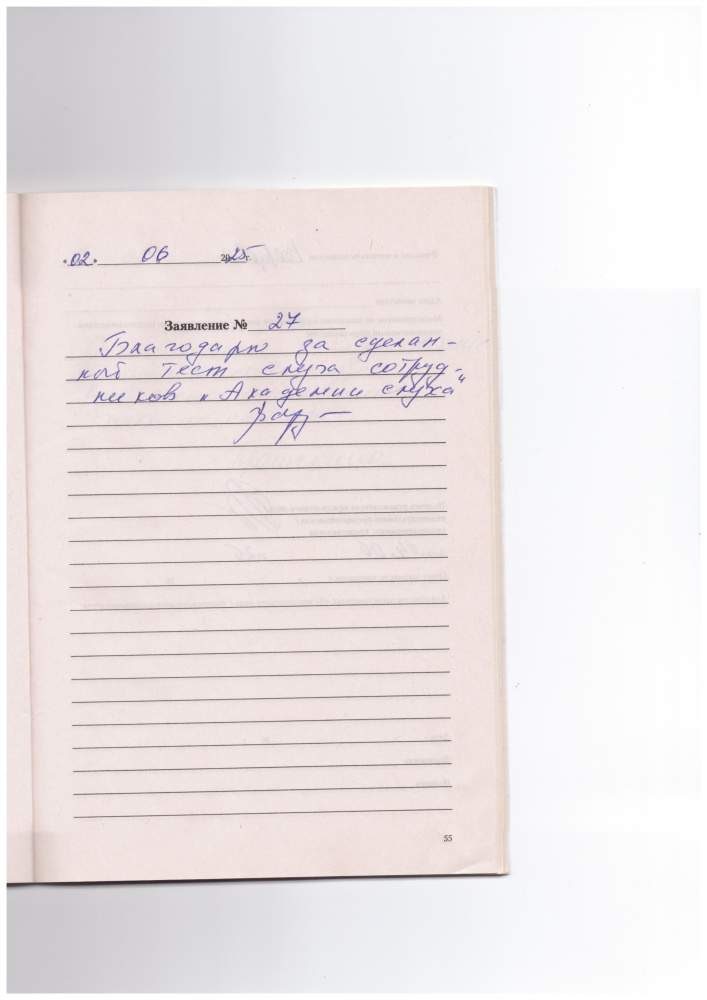 «02» 06 2025 г.
Заявление № 27
Благодарю за сделан-
ный тест слуха сотруд-
ников "Академии слуха"
55